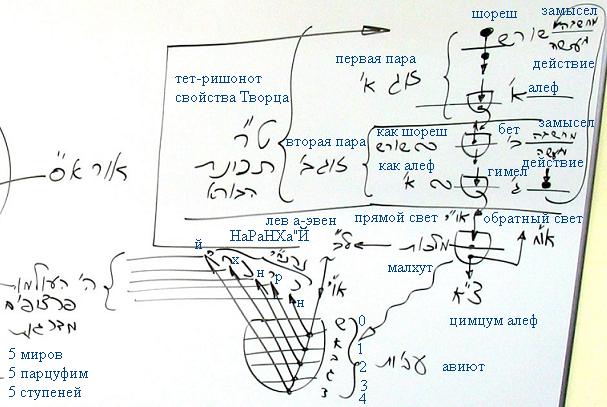 шореш
замысел
שורש
מחשבה
מעשה
первая пара
действие
тет-ришонот
свойства Творца
זוג א'
א'
алеф
вторая пара
как шореш
бет
замысел
ט"ר
זוג ב'
שורש
ב'
מחשבה
מעשה
как алеф
гимел
действие
תכונת
הבורא
א'
ג'
אור א"ס
лев а-эвен
прямой свет
או"י
обратный свет
НаРаНХа"Й
й
х
н
р
н
לב
מלכות
או"ח
малхут
או"י
ה' העולמות
פרצופים
מדרגות
צ"א
цимцум алеф
ש
א
ב
ג
ד
0
1
2
3
4
עביות
авиют
5 миров
5 парцуфим
5 ступеней